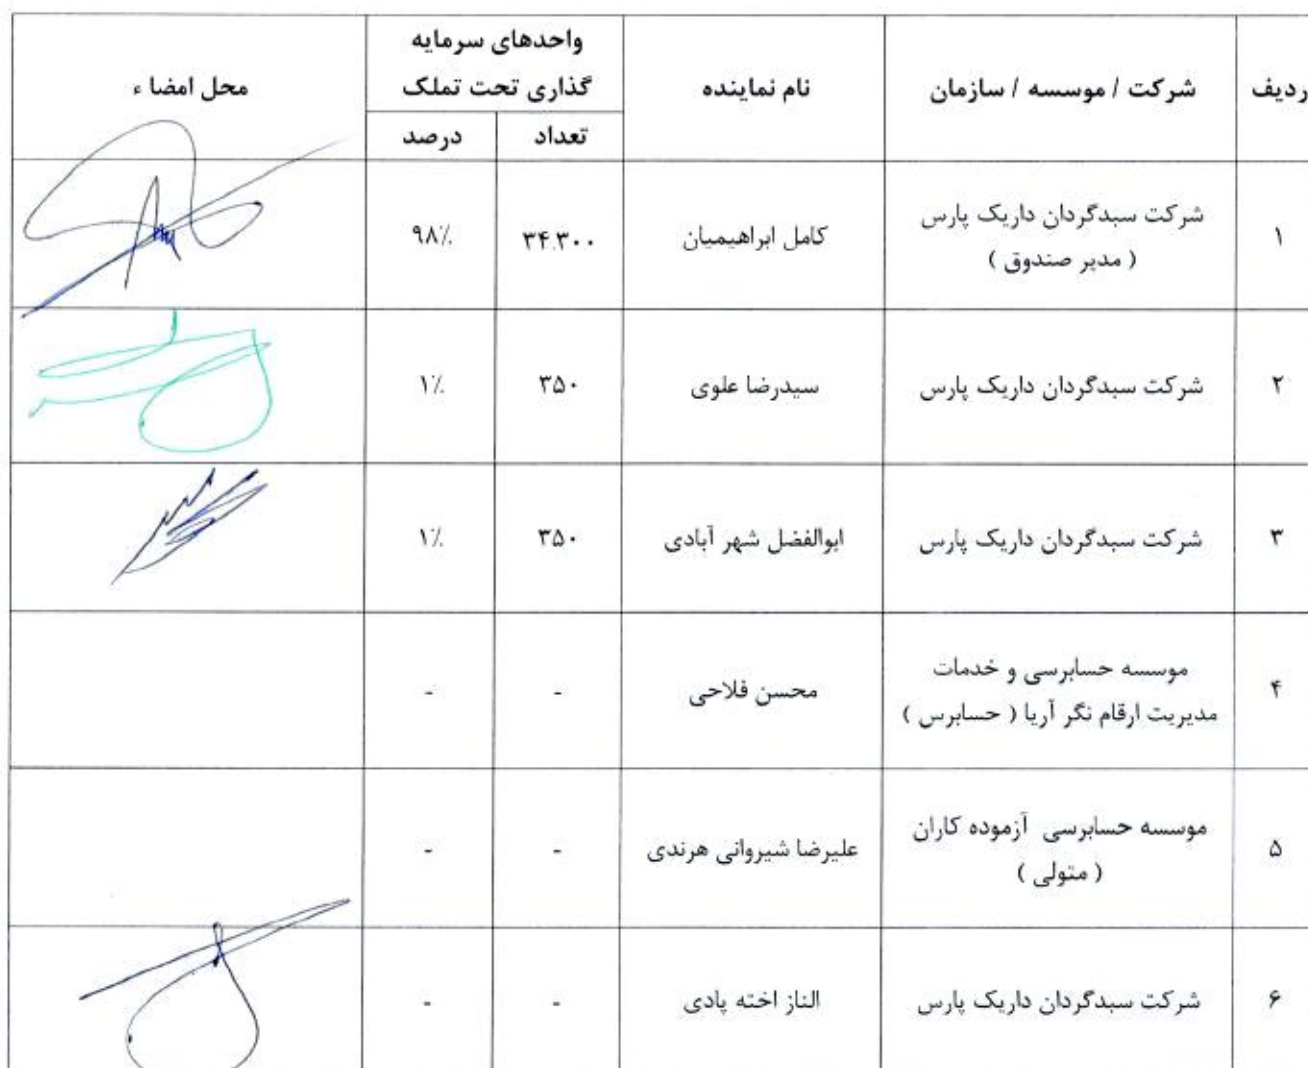 ردیف
شرکت / موسسه / سازمان
نام نماینده
واحدهای سرمایه
گذاری تحت تملک
تعداد
درصد
محل امضا ء
۱
شرکت سبدگردان داریک پارس
( مدیر صندوق )
کامل ابراهیمیان
۳۴.۳۰۰
۹۸٪
۲
شرکت سبدگردان داریک پارس
سیدرضا علوی
۳۵۰
۱٪
۳
شرکت سبدگردان داریک پارس
ابوالفضل شهر آبادی
۳۵۰
۱٪
۴
موسسه حسابرسی و خدمات
مدیریت ارقام نگر آریا ( حسابرس )
محسن فلاحی
-
-
۵
موسسه حسابرسی آزموده کاران
( متولی )
علیرضا شیروانی هرندی
-
-
۶
شرکت سبدگردان داریک پارس
الناز اخته پادی
-
-